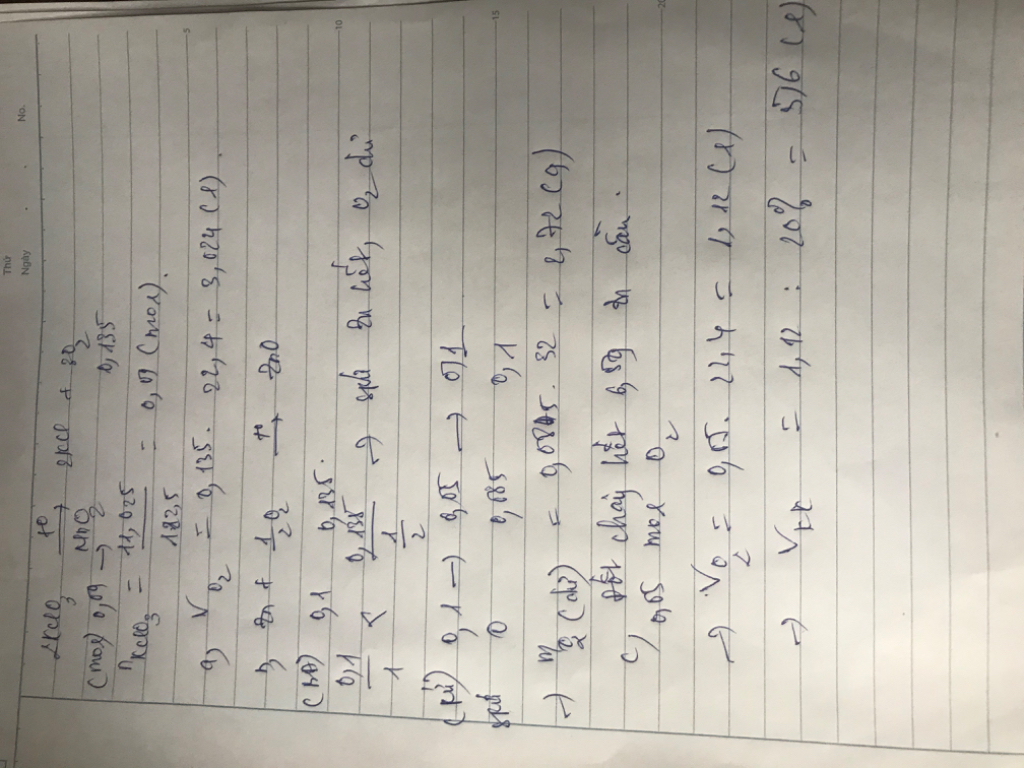 Thứ
Ngày . . No.
2KClO3 t0→ 2KCl + 3O2
(mol) 0,09 → MnO2 0,135
nKClO3 = 11,025 / 182,5 = 0,09 (mol).
a, VO2 = 0,135. 22,4 = 3,024 (l).
b, Zn + 1/2 O2 t0→ ZnO
0,1 0,135.
0,1/1 < 0,135/(1/2) → spư Zn hết, O2 dư
(pư) 0,1 → 0,05 → 0,1
spư 0 0,085 0,1
→ mO2 (dư) = 0,085. 32 = 2,72 (g)
c, Đốt cháy hết 6,5g Zn cần.
0,05 mol O2
→ VO2 = 0,05. 22,4 = 1,12 (l)
→ Vkk = 1,12 : 20% = 5,6 (l)
5
10
15
20